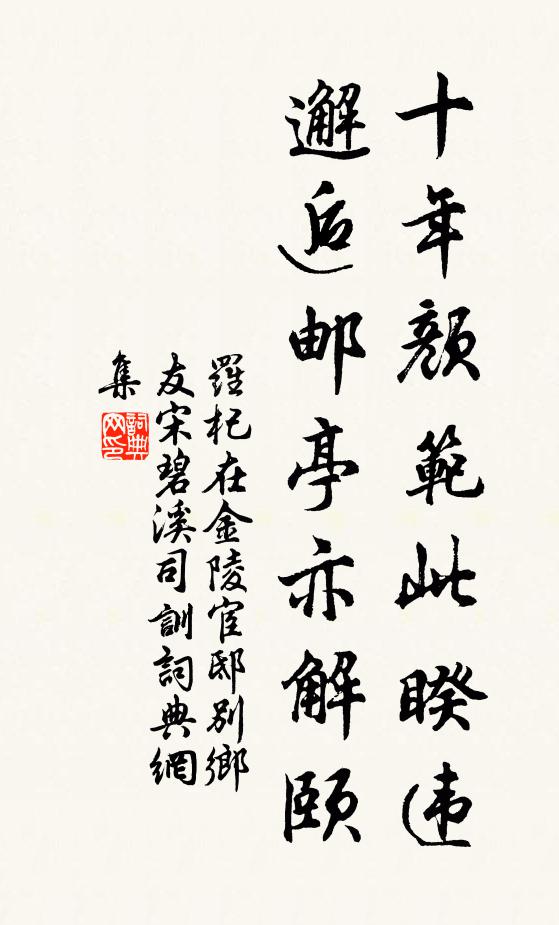 十年顏範此睽违
邂逅邮亭亦解頤
羅杞在金陵宦邸別鄉
友宋碧溪司訓詞典網
集
詞典
网印